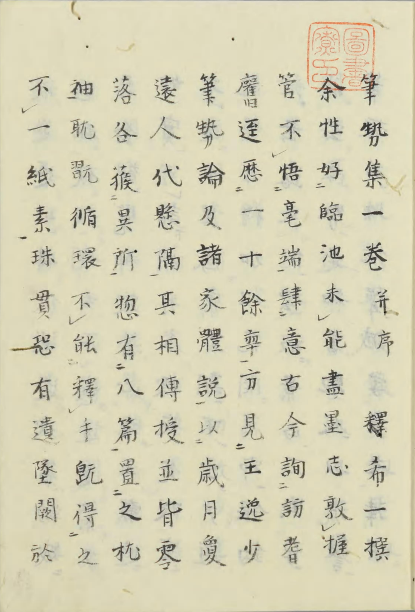 筆勢集一卷并序 釋希一撰
余性好臨池未能盡墨志敦握
管不悟毫端肆意古今詢訪耆
舊逕歷一十餘年方見王逸少
筆勢論及諸家體說以歲月敻
遠人代懸隔其相傳授並皆零
落各獲異所惣有八篇置之枕
袖耽翫循環不能釋手既得之
不一紙素珠貫恐有遺墜闕於
圖書寮印